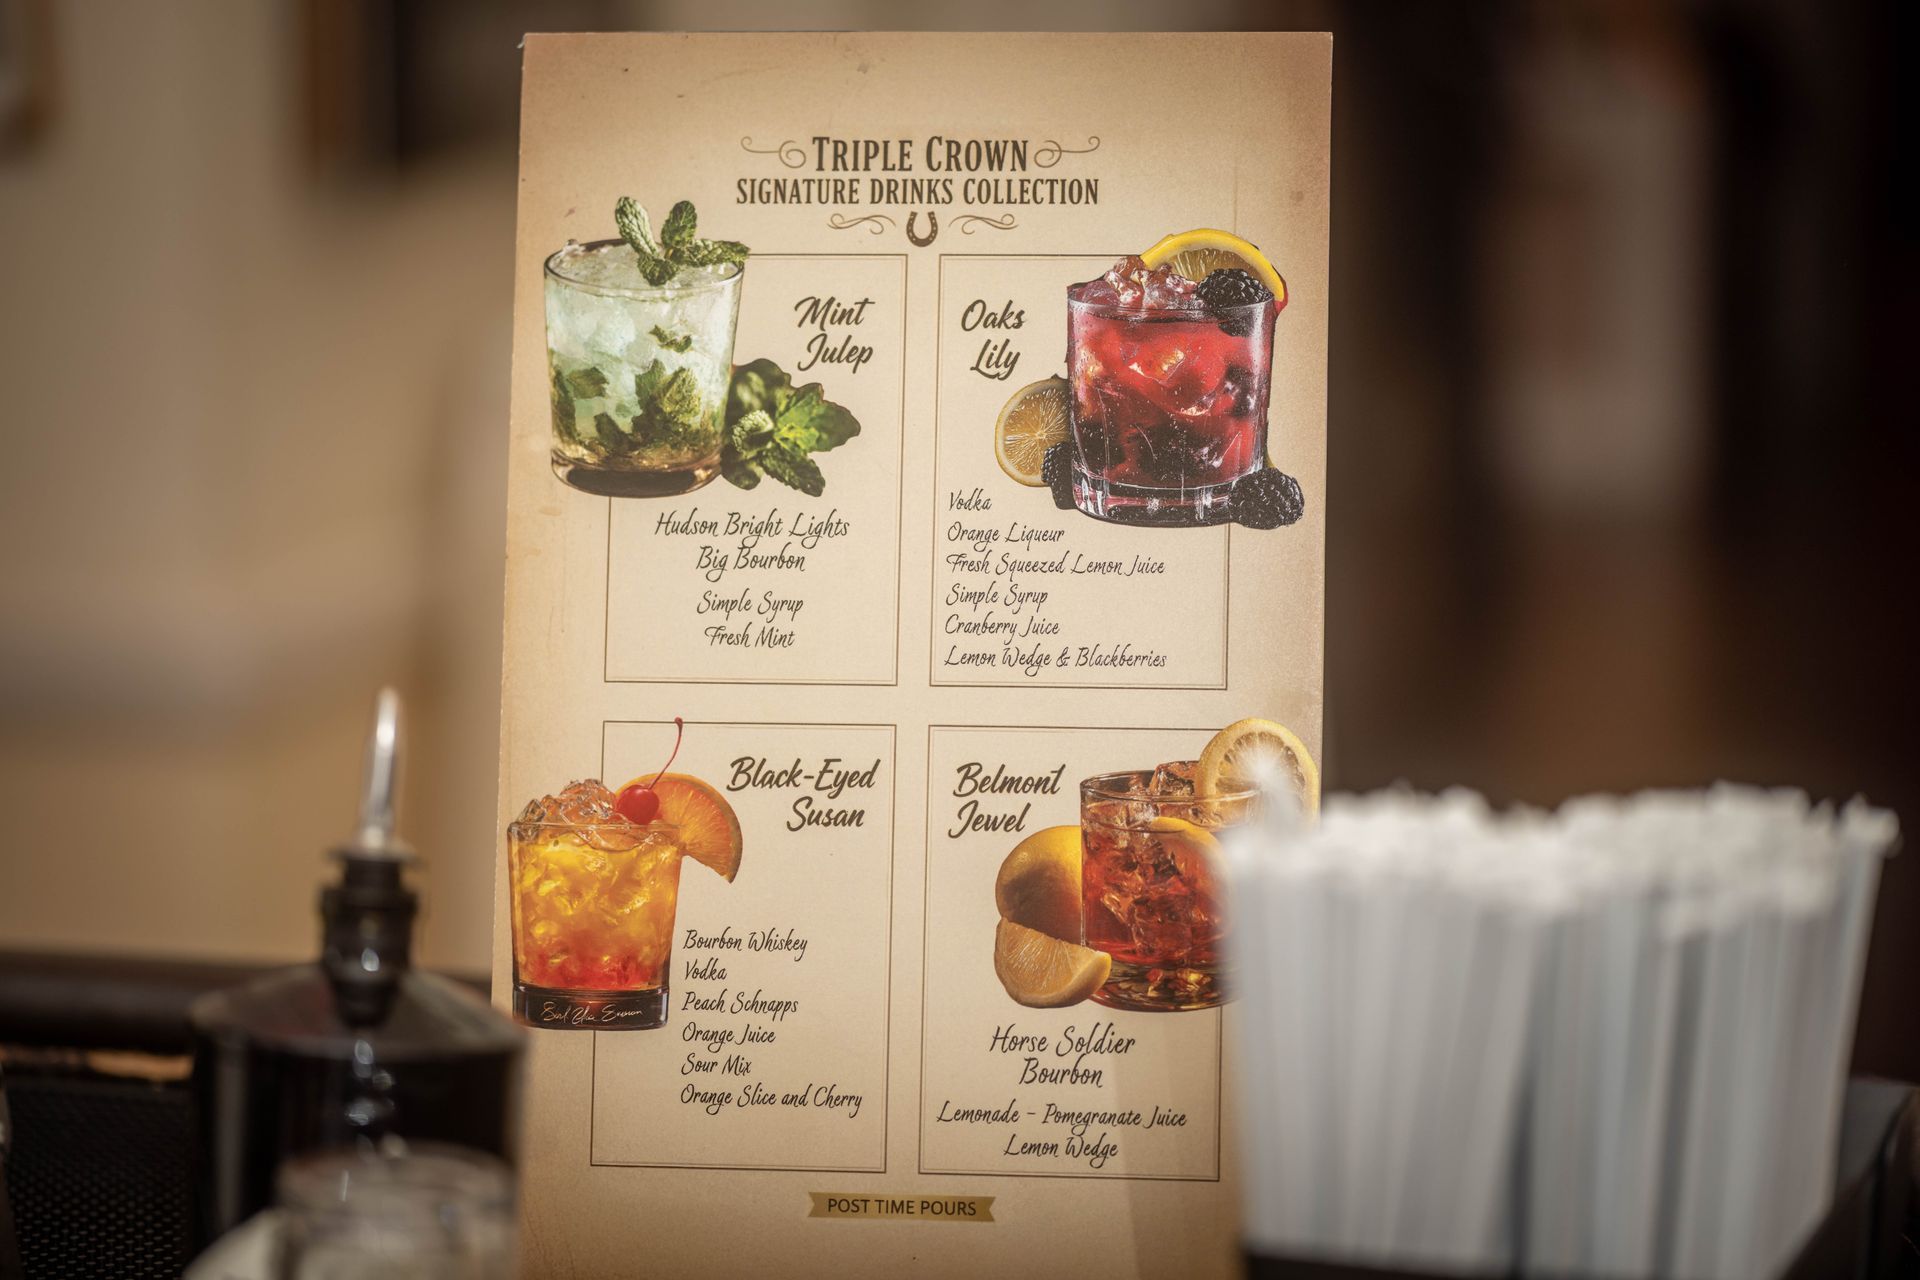 TRIPLE CROWN
SIGNATURE DRINKS COLLECTION
Mint
Julep
Hudson Bright Lights
Big Bourbon
Simple Syrup
Fresh Mint
Oaks
Lily
Vodka
Orange Liqueur
Fresh Squeezed Lemon Juice
Simple Syrup
Cranberry Juice
Lemon Wedge & Blackberries
Black-Eyed
Susan
Bourbon Whiskey
Vodka
Peach Schnapps
Orange Juice
Sour Mix
Orange Slice and Cherry
Belmont
Jewel
Horse Soldier
Bourbon
Lemonade - Pomegranate Juice
Lemon Wedge
POST TIME POURS